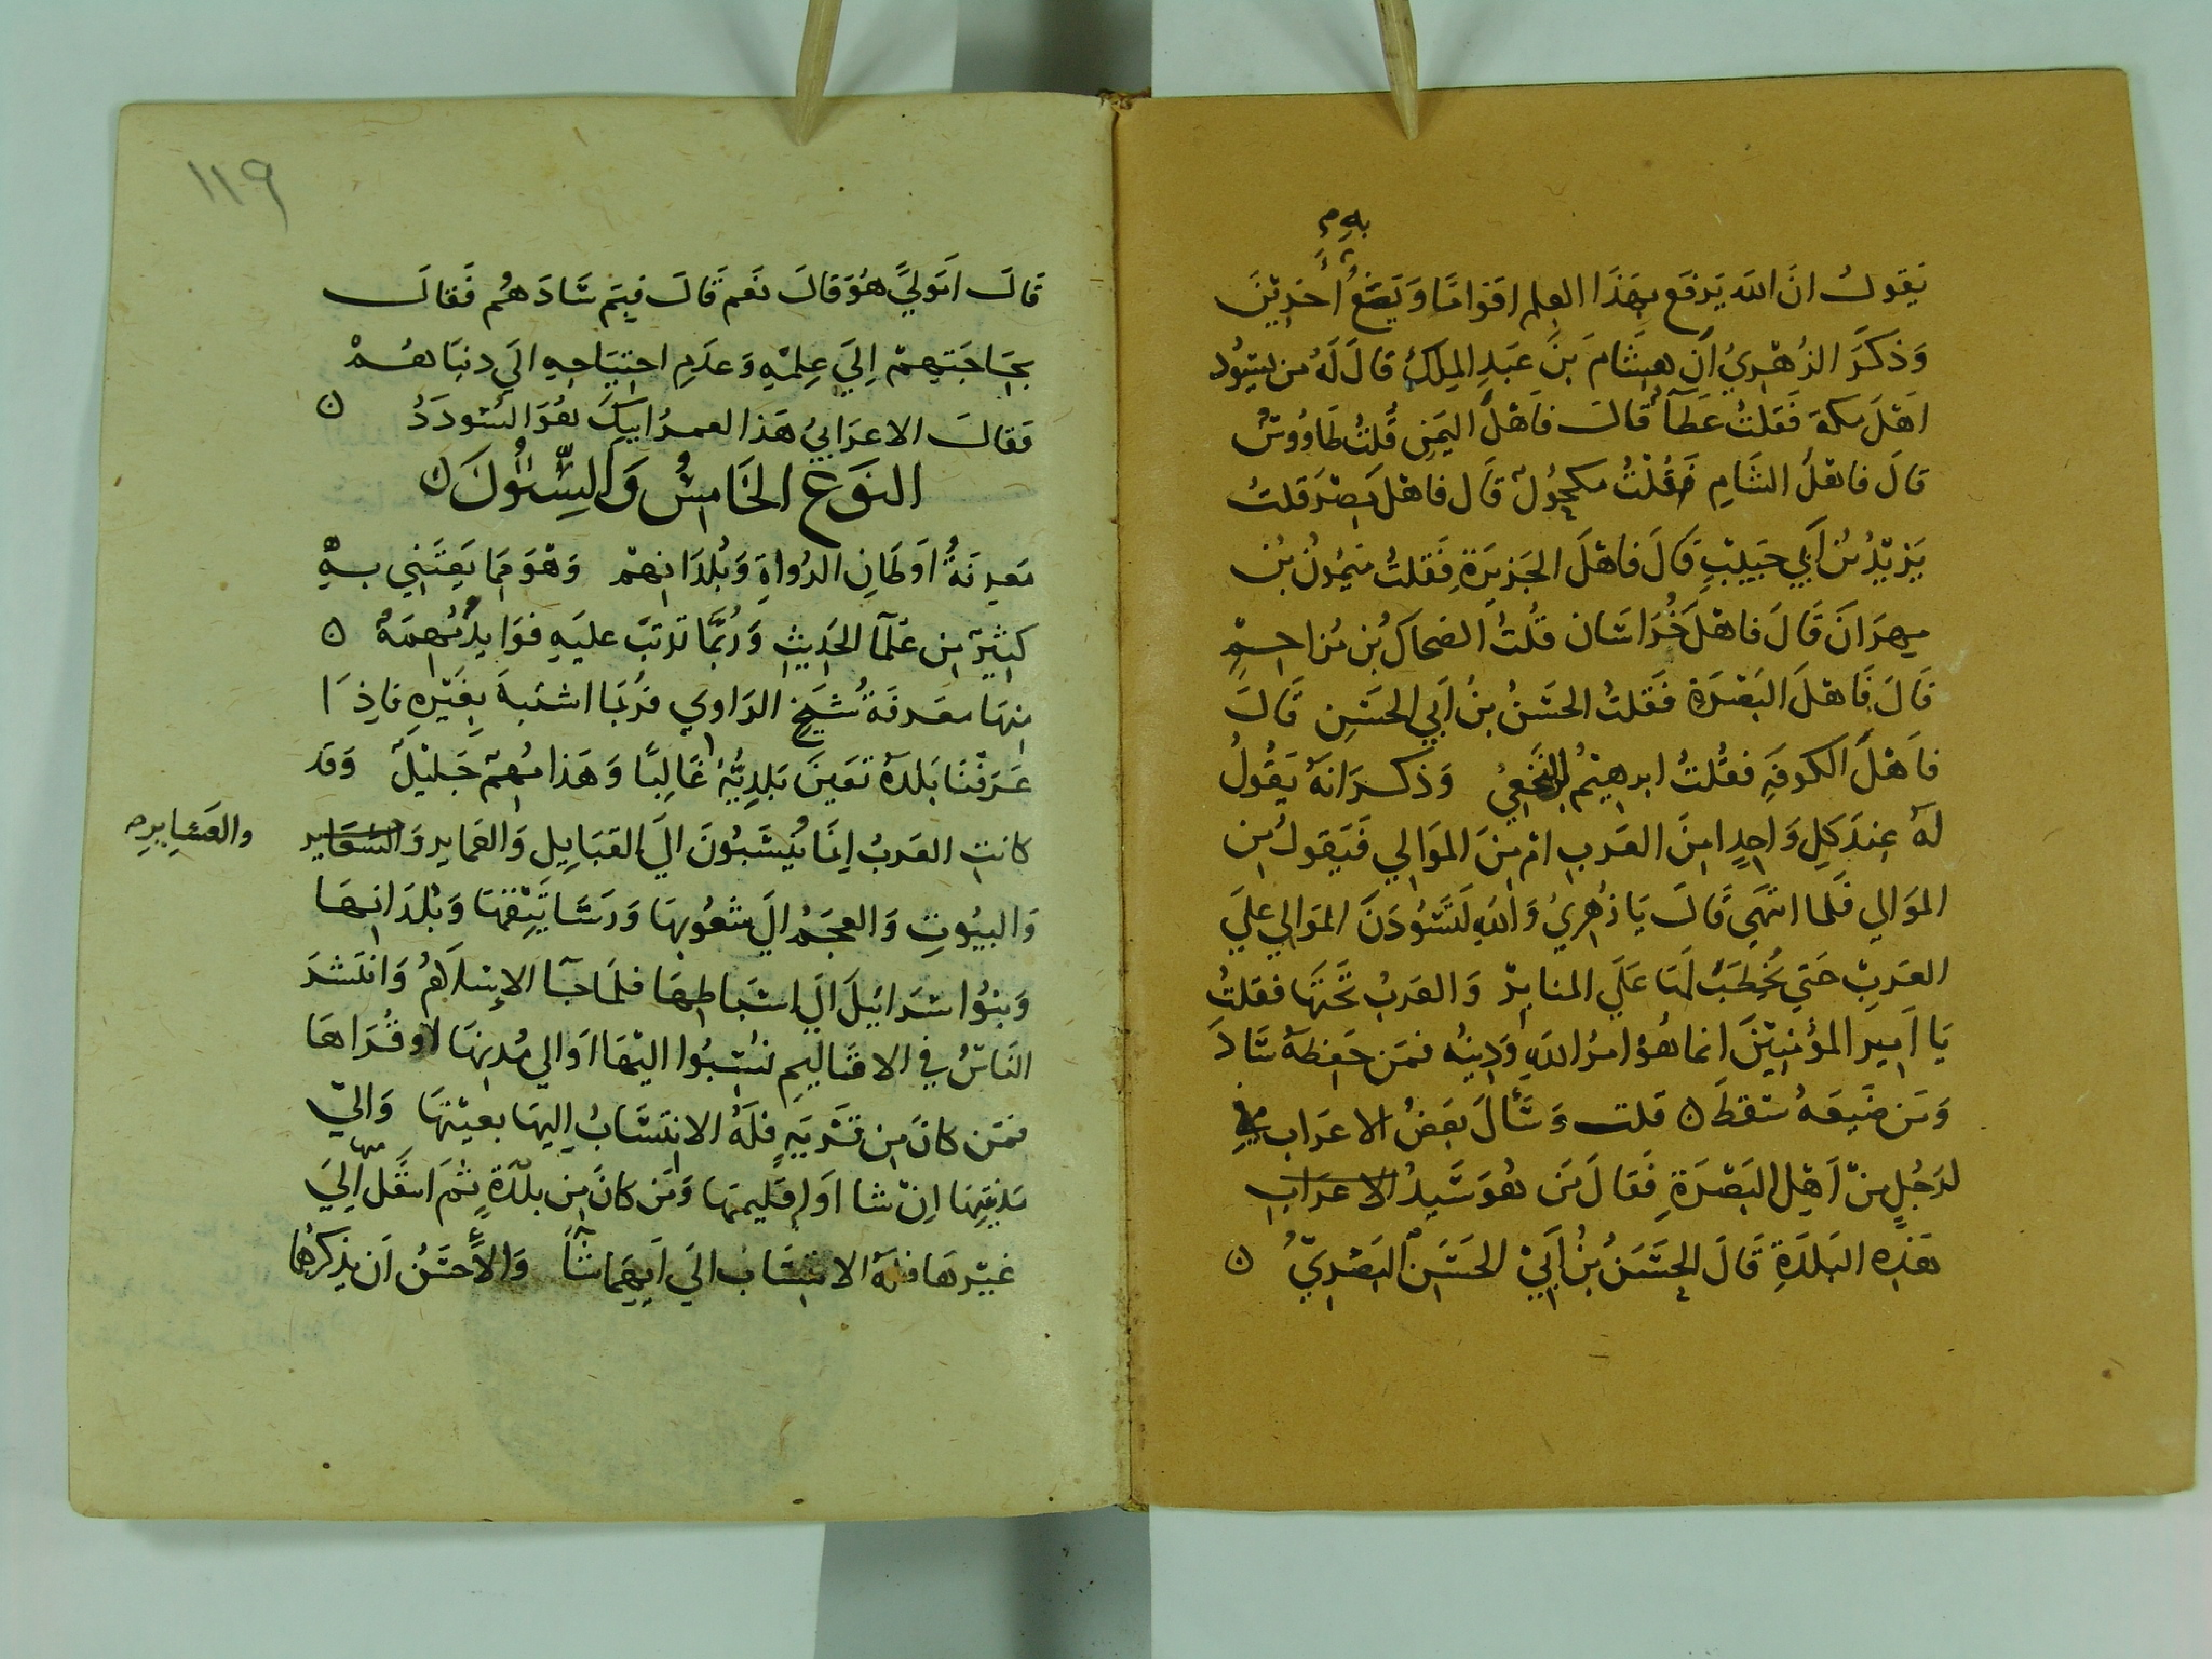 به م
يَقولُ انَّ الله يَرفَع بهَذَا العِلم اقوامًا وَيَضَعُ أخرِيْنَ
وَذَكَرَ الزُهْرِيُ اَن هِشَامَ بنَ عَبدِ المِلكِ قالَ لَهُ من يَسُود
اَهْلَ مكة فَقلتُ عَطآ قالَ فاَهْلَ اليَمَنِ قُلتُ طَاوُوسُ
قالَ فاهْلَ الشَامِ فَقُلْتُ مكحُولٌ قَال فاهْلَ مِصْرَ قلتُ
يَزيْدُ بْنُ اَبي حَبيبٍ قالَ فاهْلَ الجَزِيرَةِ فَقلتُ مَيمُونُ بن
مِهرَانَ قَالَ فاهْلَ خُرَاسَان قُلتُ الضحاكُ بن مُزاحِمٍ
قَالَ فَاهْلَ البَصْرَةِ فَقلتُ الحسَنُ بنُ اَبي الحَسَنِ قَالَ
فاَهْلَ الكوفَةِ فقُلتُ ابرهيْمُ النَّخَعِيُ وَذكرَ انهُ يَقُولُ
لهُ عِندَ كلِ وَاحِدٍ امِنَ العَربِ ام مِنَ المَوَالِي فَيَقولُ مِن
المَوَالِي فَلما انتَهَي قَالَ يَا زُهرِيُ وَاللهِ لَتَسُودَنَ المَوَالِي عليَ
العَربِ حَتي يُخطَبَ لهَا عَلَي المنابِرْ وَالعَربُ تَحْتَهَا فقلتُ
يَا اَمِيرَ المؤمنِيْنَ انما هُوَ امرُ اللهِ وَدِينُه فمَن حَفِظَهُ سَادَ
وَمَن ضَيَعَهُ سَقطَ ن قلت وَسَأَلَ بَعضُ الاعرَاب
لرَجُلٍ مِنْ اَهْلِ البَصْرَةِ فَقَالَ مَن هُوَ سَيدُ الاعرَاب
هَذِه البَلدَةِ قَالَ الحسَنُ بنُ اَبيْ الحسَنِ البَصْرِيّ ن
١١٩
قَالَ اَمَولَيً هُوَ قالَ نعَم قَالَ فبِمَ سَادَهُم فَقالَ
بحَاجَتِهِمْ إلَيَ عِلِمْهِ وَعَدَمِ احتيَاجِهِ اليَ دنيَاهُمْ
فقالَ الاعرَابيُ هَذا لعمرُ ابيكَ هُوَ السُودَدُ ن
النَوعُ الخَامِسُ وَالسِّتُونَ ن
مَعرِفَةُ اَوطَانِ الرُواةِ وَبُلدَانِهمْ وَهْوَ مِمَا يَعتَنِي بهِ
كثيرٌ مِن عُلمآ الحَدِيثِ وَرُبَّما ترَتبَ عليَهِ فوَايدُ مُهِمَةٌ ن
مِنهَا مَعرفَةُ شَيخِ الرَاوي فرُبمَا اشتبهَ بِغَيْرِهِ فاِذَا
عَرَفْنَا بَلدَهُ تعَينَ بَلدِيُّهُ غَالِبًا وَهَذا مُهِمٌ جَليْلٌ وَقد
كانتِ العَربُ اِنَمَا يُنسَبُونَ اليَ القبَايِلِ وَالعَمايرِ وَالشعَاير
والعَشايرِ صح
وَالبيُوتِ وَالعجَمُ اليَ شعُوبِهَا وَرسَاتِيْقِهَا وَبلدَانِهَا
وَبنُوا سْرَائِيلَ اليَ اسْبَاطِهَا فلمَا جآ الاِسْلَامُ وَانتَشرَ
النَاسُ في الاقَالِيمِ نُسِبُوا اليْهَا اَو الي مُدنِهَا او قُرَاهَا
فمَن كانَ مِن قَرْيَةٍ فلَهُ الانتِسَابُ اِليهَا بعيْنِهَا وَاليّ
مَديْنَتِهَا اِنْ شا اَو اِقليمِهَا وَمَن كانَ مِن بلدَةٍ ثمَ انتقَلَ منها اِليَ
غيْرِهَا فلَهُ الانتِسَاب اليَ اَيهمَا شآَ وَالأَحسَنُ اَن يَذكرَهُما